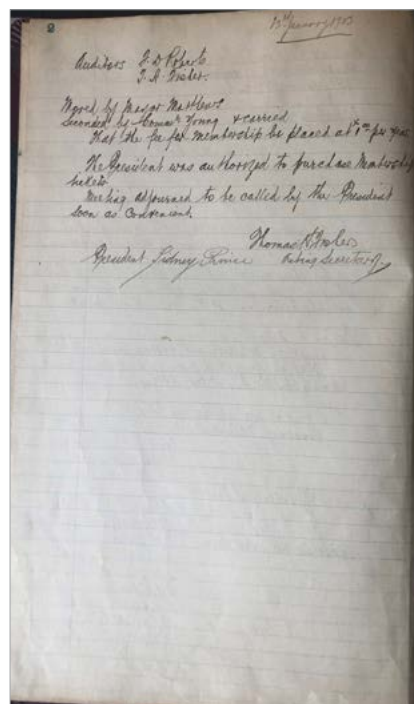 2
13th January 1903
Auditors F. D. Roberts
T. A. Fraher.
Moved by Mayor Matthews
Seconded by Thomas Young & carried
That the fee for membership be placed at $1.00 per year
The President was authorized to purchase Membership
tickets
Meeting adjourned to be called by the President
soon as convenient.
Thomas
President Sidney Acting Secretary.